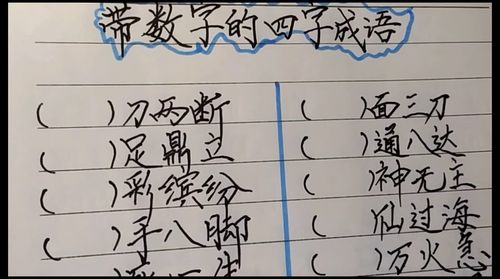 带数字的四字成语
( )刀两断
( )足鼎立
( )彩缤纷
( )手八脚
( )面三刀
( )通八达
( )神无主
( )仙过海
( )万火急